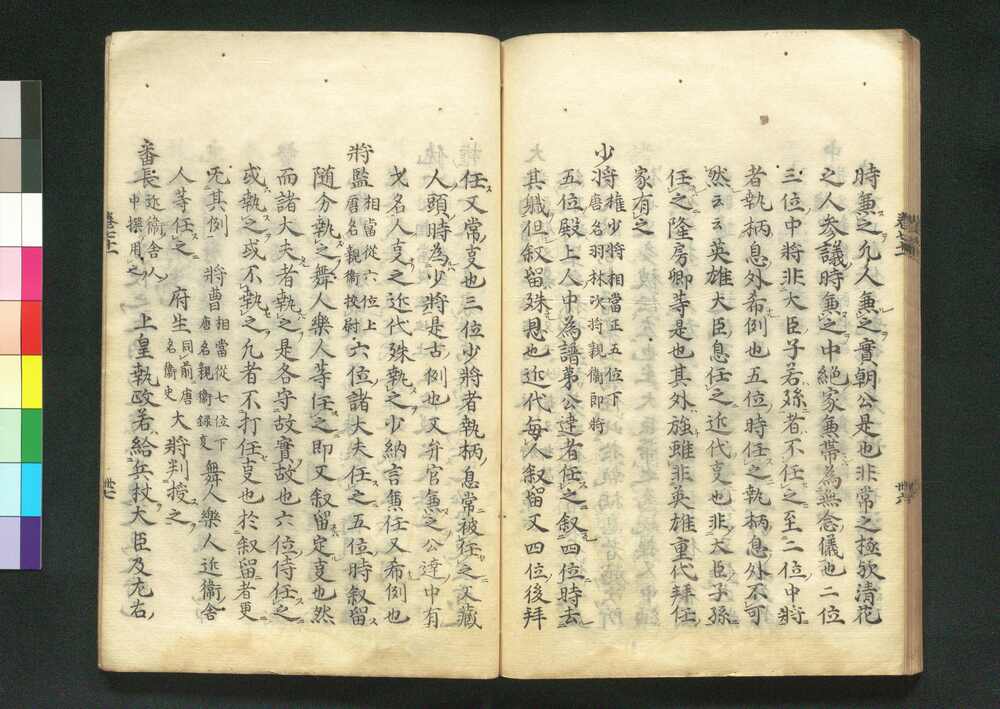 時兼之凢人兼之實朝公是也非常之極欤清花
之人参議時兼之中絶家兼帶為無念儀也二位
三位中將非大臣子若孫者不任之至二位中將
者執柄息外希例也五位時任之執柄息外不可
然云云英雄大臣息任之近代㕝也非大臣子孫
任之隆房卿等是也其外強雖非英雄重代拜任
家有之
少將權少將相當正五位下
唐名羽林次將親衞即將
五位殿上人中為譜苐公達者任之叙四位時去
其軄但叙留殊恩也近代每人叙留又四位後拜
任又常㕝也三位少將者執柄息常被任之又藏
人頭時為少將是古例也又弁官兼之公達中有
才名人㕝之近代殊執之少納言兼任又希例也
將監相當從六位上
唐名親衞校尉
六位諸大夫任之五位時叙留
随分執之舞人樂人等任之即又叙留定㕝也然
而諸大夫者執之是各守故實故也六位侍任之
或執之或不執之凢者不打任㕝也於叙留者更
旡其例
將曹相當從七位下
唐名親衞録㕝
舞人樂人近衞舍
人等任之
府生同前唐
名衞史
大將判授之
番長近衞舍人
中撰用之
上皇執政若給兵杖大臣及左右
卷七十一
卅六
卷七十一
卅七